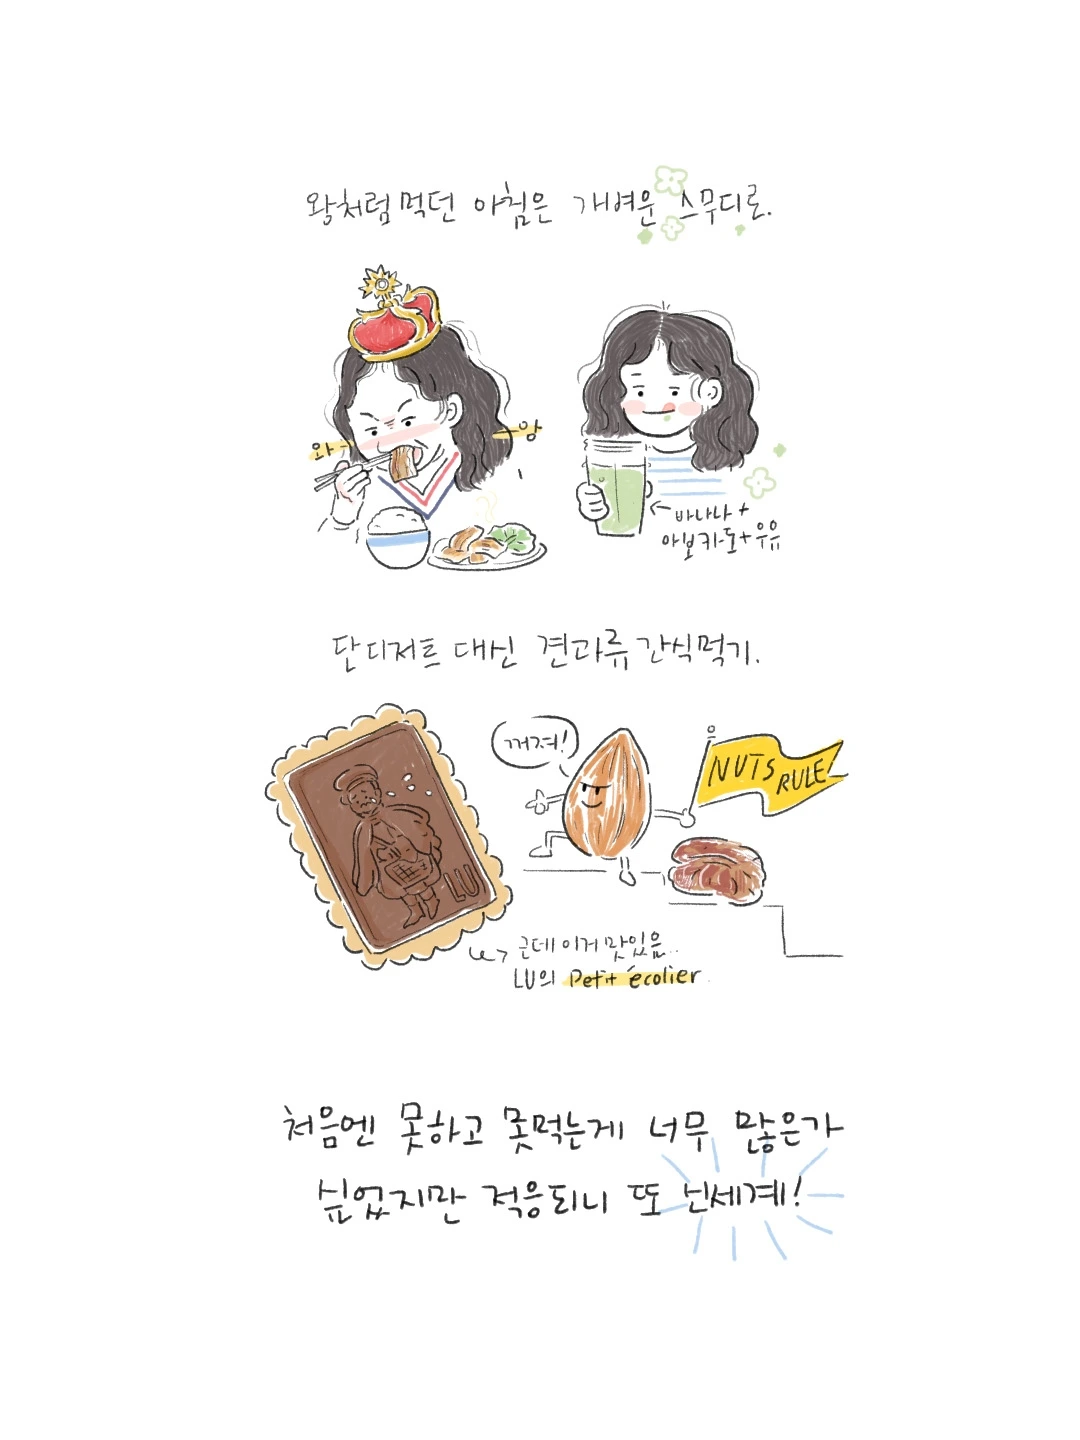 왕처럼 먹던 아침은 개벼운 스무디로.
와-
-앙
바나나+
아보카도+우유
단 디저트 대신 견과류 간식먹기.
꺼져!
NUTS RULE
LU
근데 이거 맛있음..
LU의 Petit écolier
처음엔 못하고 못먹는게 너무 많은가
싶었지만 적응되니 또 신세계!